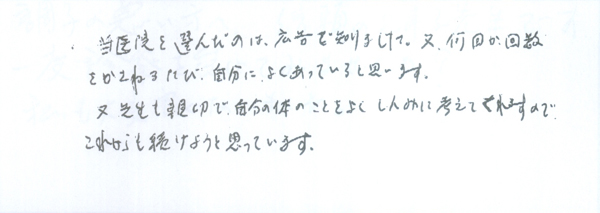 ・ 当医院を選んだのは、広告で知りまして。又、何回か回数
をかさねるたび、自分に、よくあっていると思います。
又先生も親切で、自分の体のことをよくしんみに考えてくれますので、
これからも続けようと思っています。